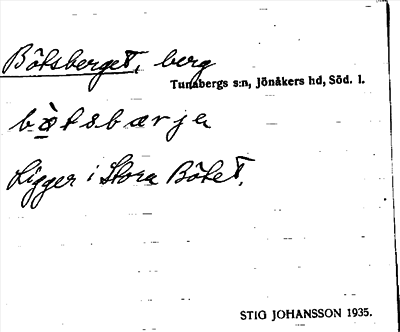 Bötsberget, berg
Tunabergs s:n, Jönåkers hd, Söd. l.
Ligger i Stora Bötet.
STIG JOHANSSON 1935.